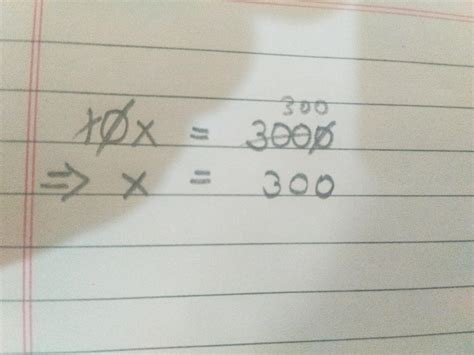 300
10x = 3000
⇒ x = 300